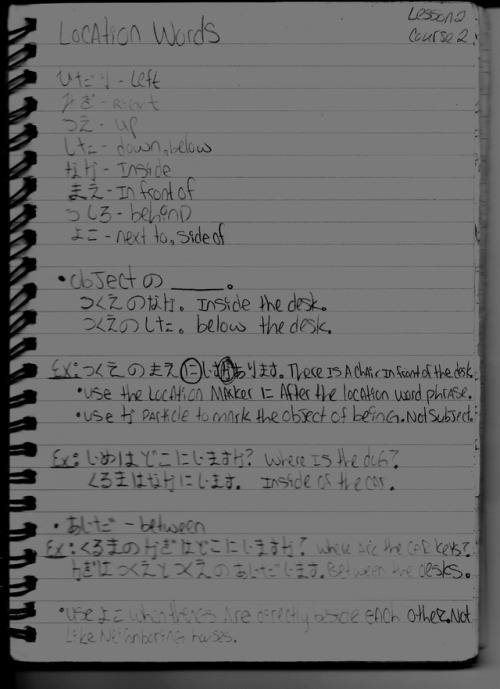 Location Words
Lesson 2
Course 2.
ひだり - Left
みぎ - Right
つえ - up
した - down, below
なか - Inside
まえ - In front of
つしろ - behind
よこ - next to, side of
• object の ____。
つくえのなか。 Inside the desk.
つくえのした。 below the desk.
Ex: つくえのまえに あります。 There is A chair in front of the desk.
• use the Location Marker に After the location word phrase.
• use が Particle to mark the object of being. Not subject.
Ex: いぬはどこにいますか? Where is the dog?
くるまはなかにいます。 Inside of the car.
• あいだ - between
Ex: くるまのかぎはどこにいますか? Where are the car keys?
かぎはつくえとつくえのあいだにいます. Between the desks.
• use よこ when things are directly beside each other. Not
Like Neighboring houses.